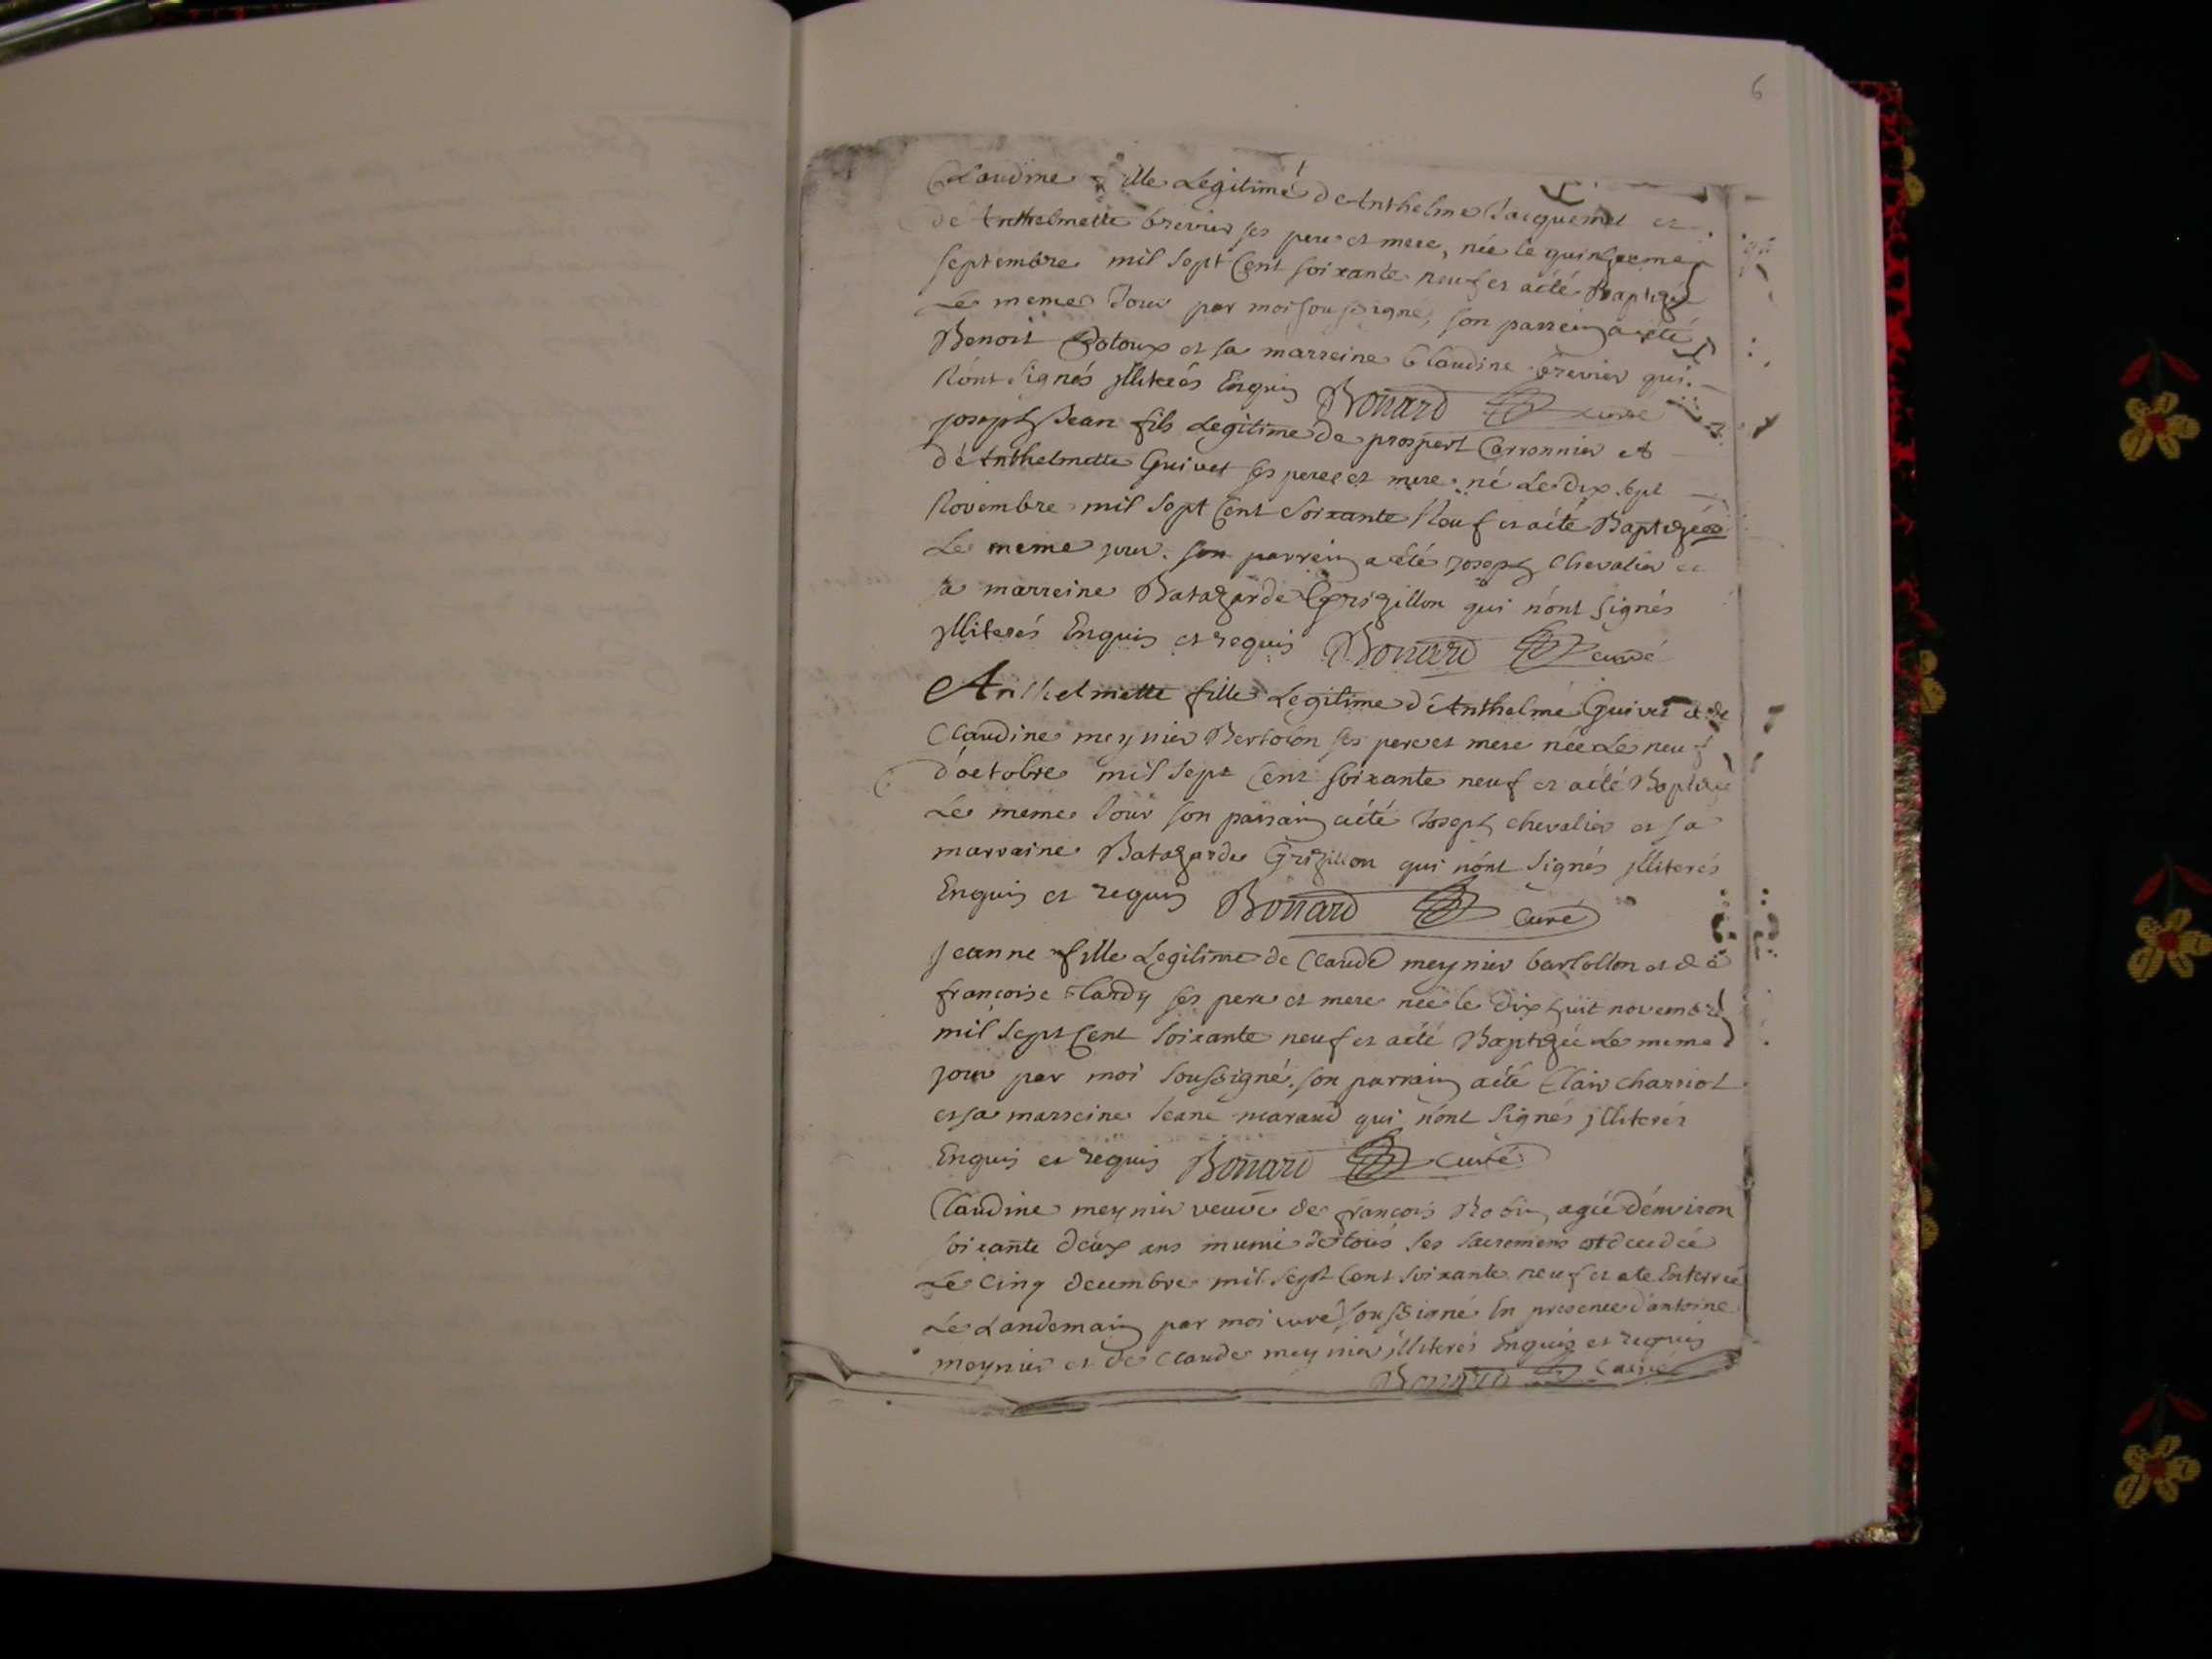 6
Claudine fille Legitime de Anthelme Jacquemet et
de Anthelmette brevier ses pere et mere, née le quinzieme
septembre mil sept Cent soixante neuf et aété Baptizée
Le meme Jour par moi soussigné, son parrein a eté
Benoit et sa marreine Claudine brevier qui
n'ont signés jlliterés Enquis Bonard curé
joseph Jean fils Legitime de prospert Carronnier et
d'Anthelmette Guivet ses pere et mere né Le Dix sept
Novembre mil sept Cent soixante Neuf et aété Baptizé
Le meme jour. son parrein a été joseph Chevalier et
sa marreine Batazarde Grizillon qui n'ont signés
jlliterés Enquis et requis Bonard curé
Anthelmette fille Legitime d'Anthelme Guivet et de
Claudine meynier Bertolon ses pere et mere née Le neuf
d'octobre mil sept Cent soixante neuf et aété Baptizée
Le meme Jour son parrain aété Joseph chevalier et sa
marraine Batazarde Grizillon qui n'ont signés jlliterés
Enquis et requis Bonard Curé
Jeanne fille Legitime de Claude meynier bartollon et de
francoise Clardy ses pere et mere née le Dix huit novembre
mil sept Cent soixante neuf et aété Baptizée Le meme
jour par moi soussigné. son parrain aété Clair charriot
et sa marreine Jeane maraud qui n'ont signés jlliterés
Enquis et requis Bonard curé
Claudine meynier veuve de francois Robin agée d'environ
soixante deux ans munie de tous ses sacremens est decedée
Le Cinq decembre mil sept Cent soixante neuf et ete Enterrée
Le Landemain par moi curé soussigné En presence d'antoine
meynier et de Claude meynier jlliterés Enquis et requis
Bonard Curé